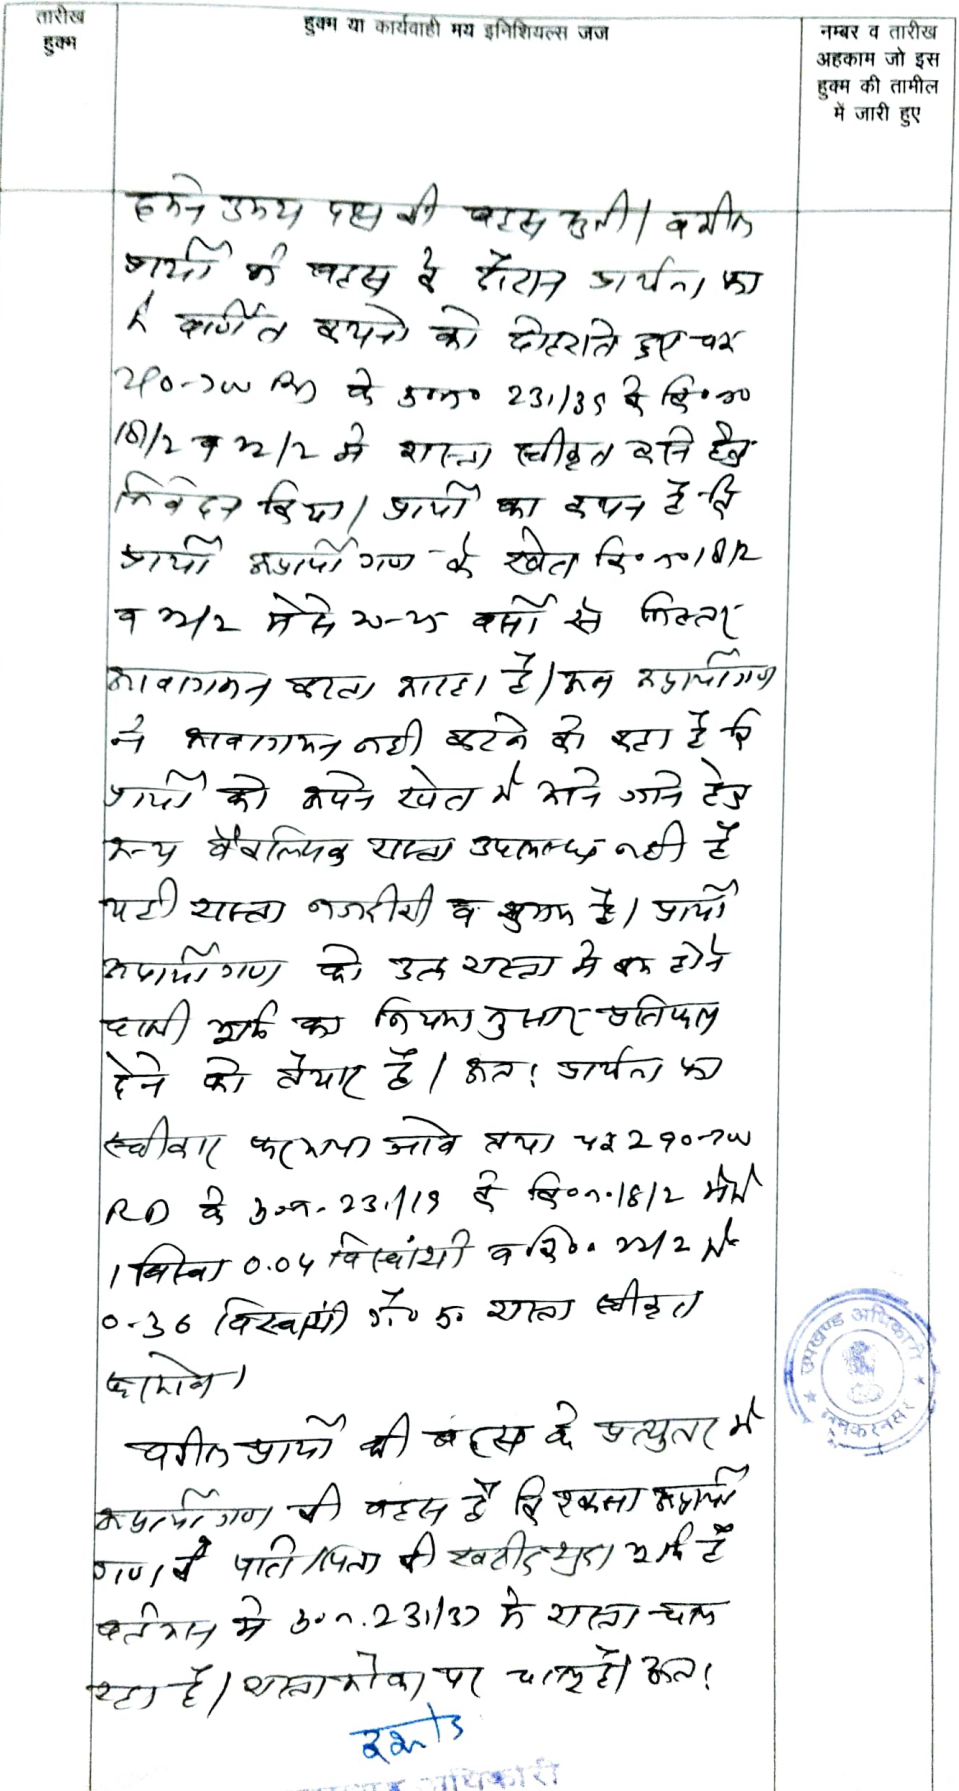 तारीख
हुक्म
हुक्म या कार्यवाही मय इनिशियल्स जज
नम्बर व तारीख
अहकाम जो इस
हुक्म की तामील
में जारी हुए
हमने उभय पक्ष की बहस सुनी। वकील
प्रार्थी ने बहस के दौरान प्रार्थना पत्र
में वर्णित कथनों को दोहराते हुए चक
के मु०न० 231/39 के कि०न०
18/2 व 22/2 में रास्ता स्वीकृत करने हेतु
निवेदन किया। प्रार्थी का कथन है कि
प्रार्थी अप्रार्थीगण के खेत कि०न० 18/2
व 22/2 में से वर्षों से निरन्तर
आवागमन करता आ रहा है। अब अप्रार्थीगण
ने आवागमन नहीं करने को कहा है कि
प्रार्थी को अपने खेत में आने जाने हेतु
अन्य वैकल्पिक रास्ता उपलब्ध नहीं है
यही रास्ता नजदीकी व सुगम है। प्रार्थी
अप्रार्थीगण को उक्त रास्ता में कम होने
वाली भूमि का नियमानुसार प्रतिफल
देने को तैयार है। अतः प्रार्थना पत्र
स्वीकार फरमाया जावे तथा चक
RD के मु०न० 231/19 के कि०न० 18/2 में से
1 बिस्वा 0.04 बिस्वांसी व कि० 22/2 में
0-36 बिस्वांसी रास्ता स्वीकृत
फरमावे।
वकील प्रार्थी की बहस के प्रत्युतर में
अप्रार्थीगण की बहस है कि रकबा अप्रार्थी
गण के पति/पिता की खरीद शुदा भूमि है
वर्तमान में मु०न० 231/37 में रास्ता चल
रहा है। रास्ता मौका पर चालू है। अतः
उपखण्ड अधिकारी
लूनकरनसर
अधिकारी